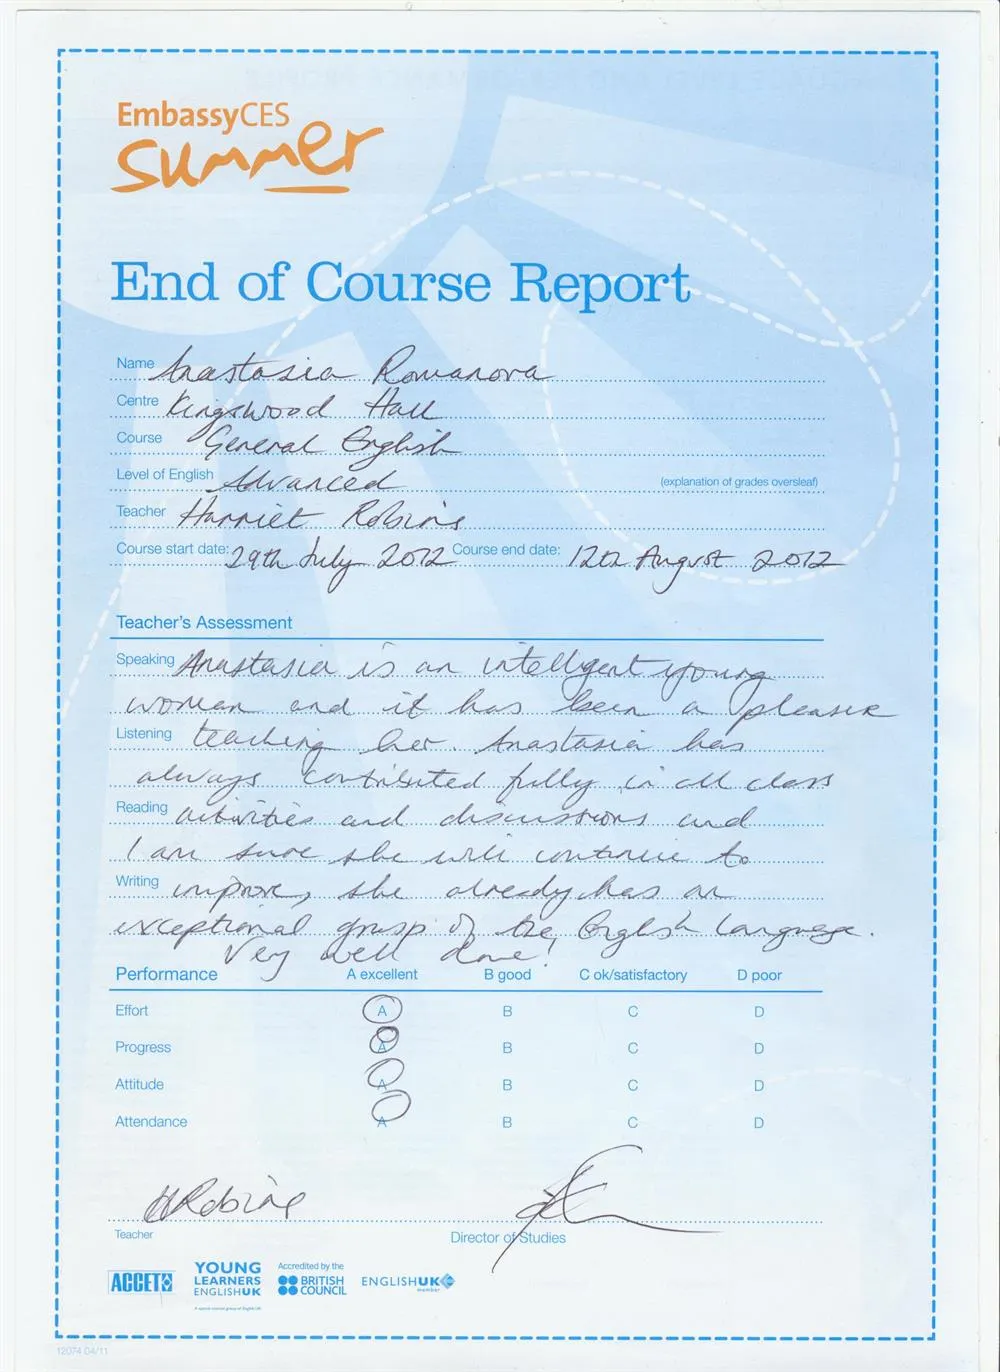 EmbassyCES
summer
End of Course Report
Name Anastasia Romanova
Centre Kingswood Hall
Course General English
Level of English Advanced (explanation of grades oversleaf)
Teacher Harriet Robins
Course start date: 29th July 2012 Course end date: 12th August 2012
Teacher's Assessment
Speaking Anastasia is an intelligent young
woman and it has been a pleasure
Listening teaching her. Anastasia has
always contributed fully in all class
Reading activities and discussions and
I am sure she will continue to
Writing improve, she already has an
exceptional grasp of the English language.
Very well done!
Performance A excellent B good C ok/satisfactory D poor
Effort A B C D
Progress A B C D
Attitude A B C D
Attendance A B C D
HRobins
Teacher Director of Studies
ACCET
YOUNG LEARNERS ENGLISHUK
A special interest group of English UK
Accredited by the
BRITISH COUNCIL
ENGLISHUK
member
12074 04/11